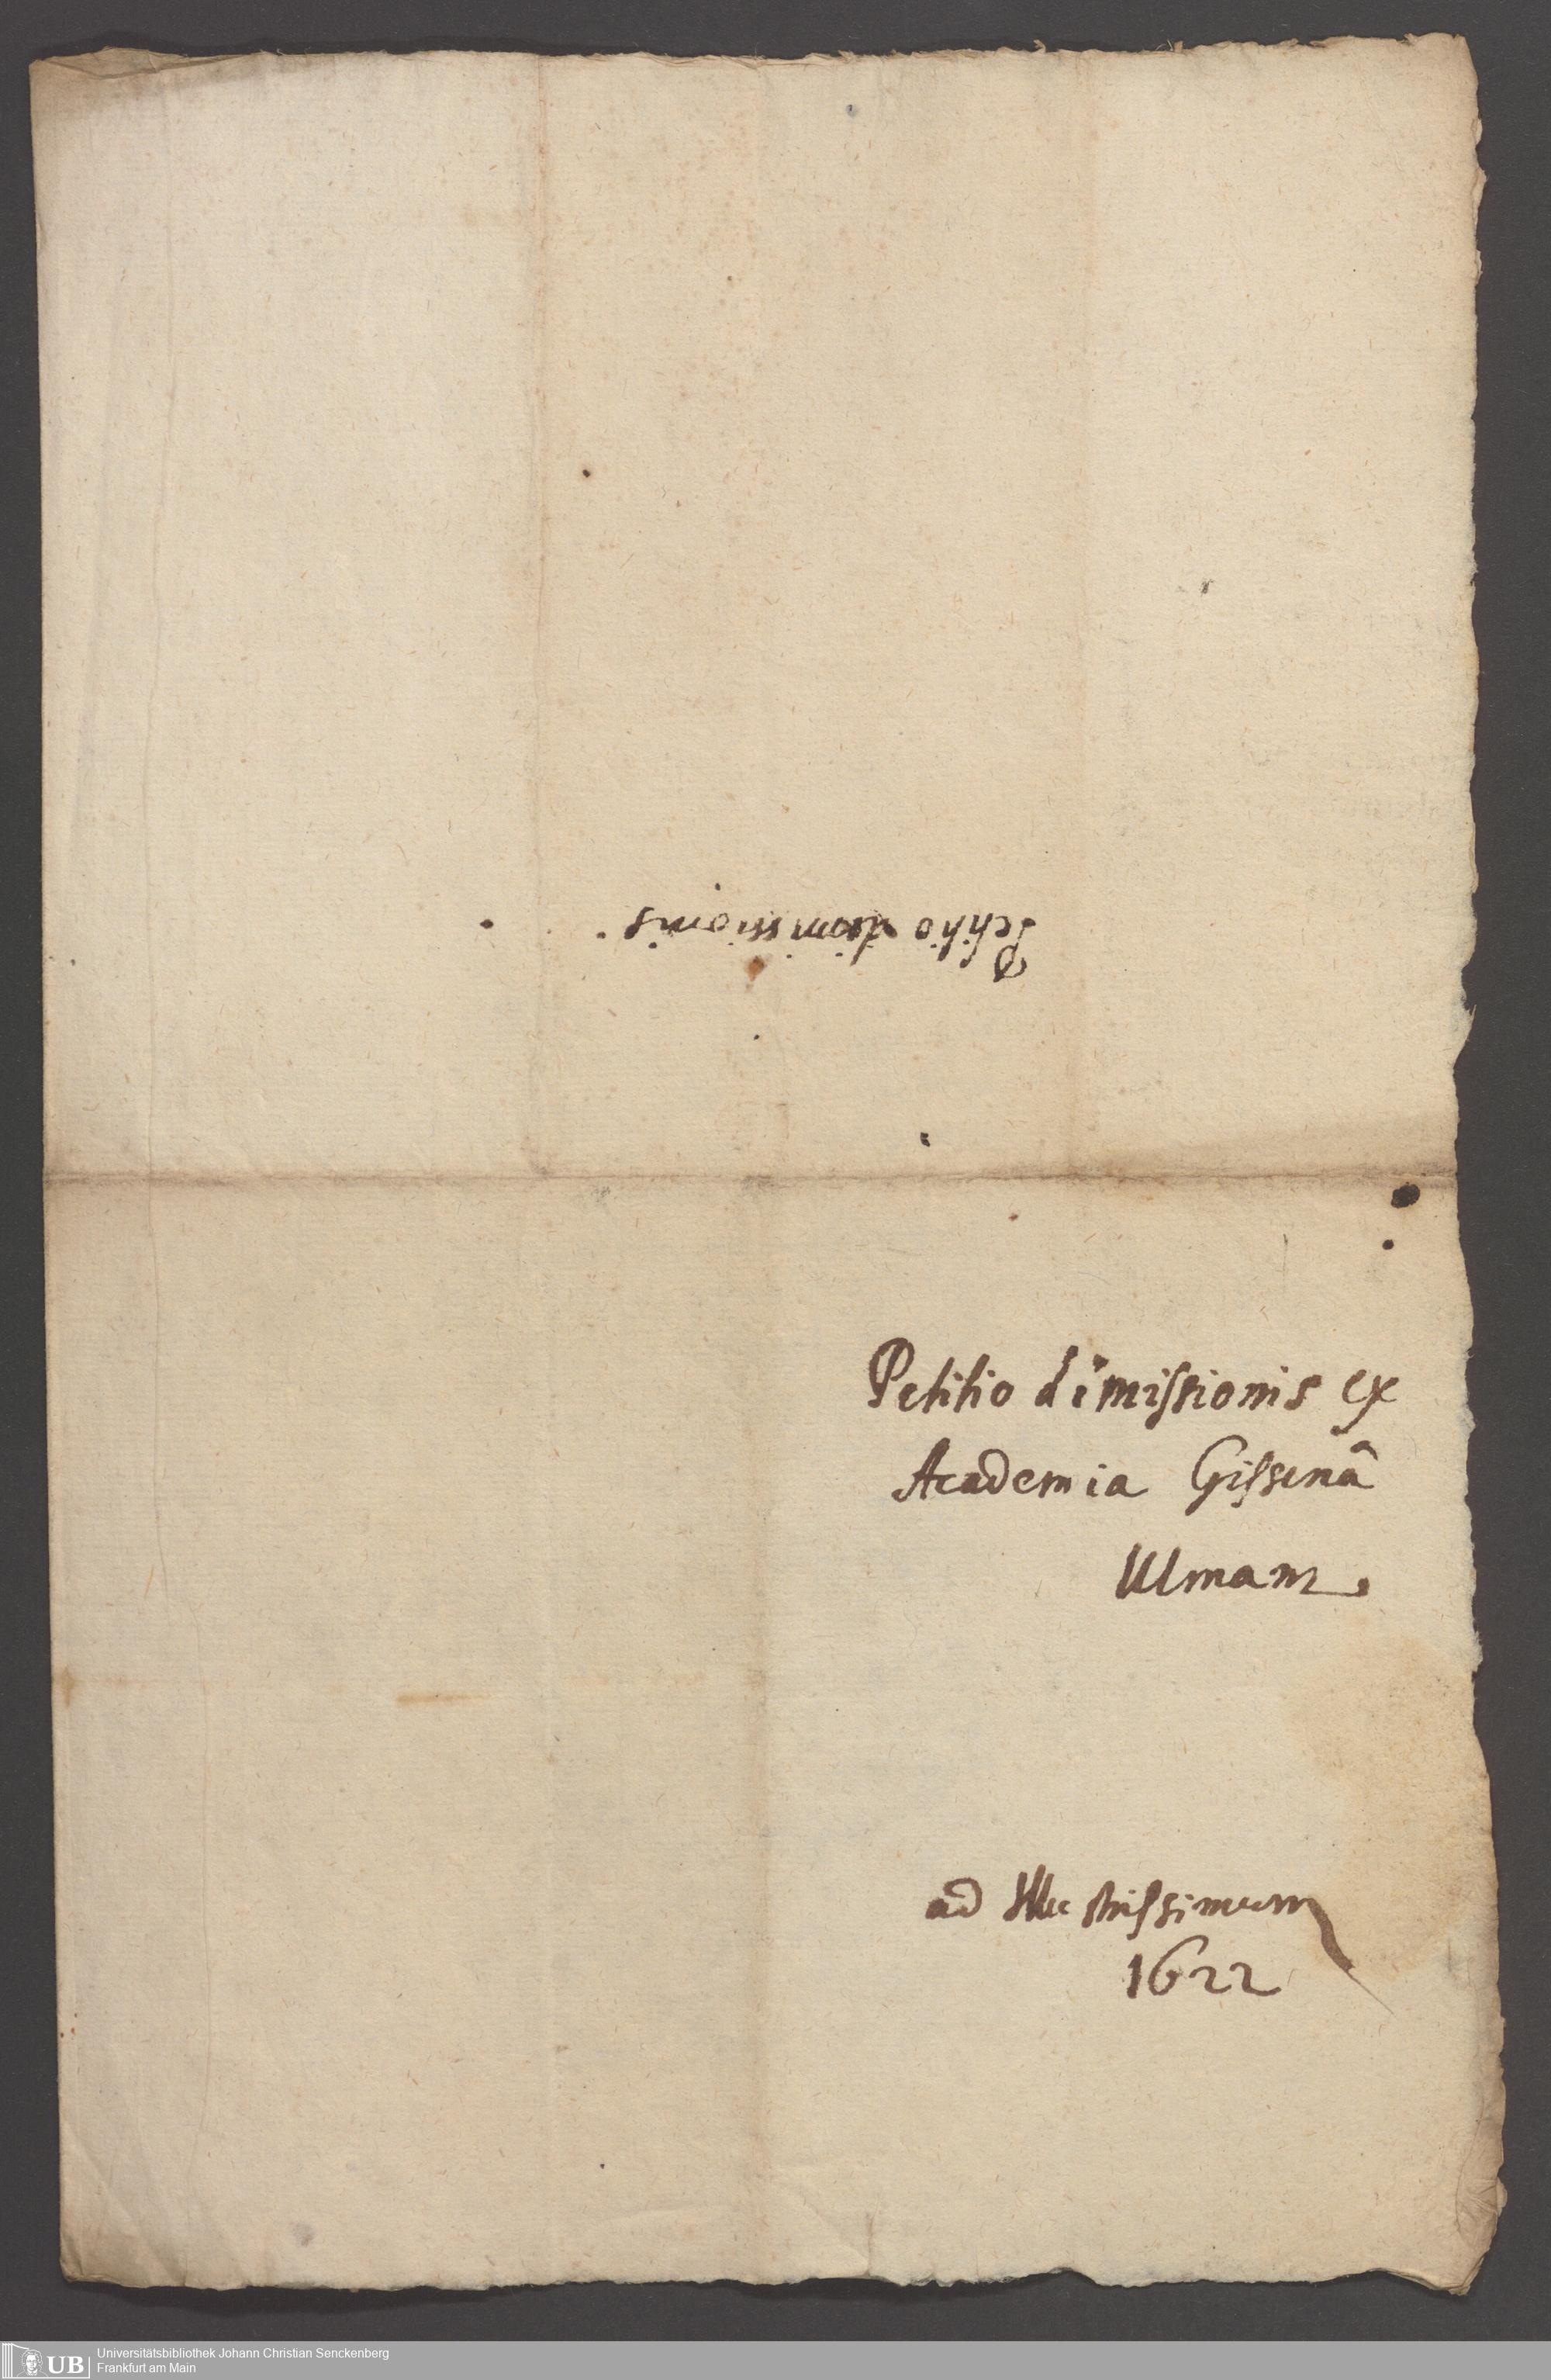 Petitio dimissionis.
Petitio dimissionis ex
Academia Gissenâ
Ulmam.
ad Illustrissimum
1622
UB
Universitätsbibliothek Johann Christian Senckenberg
Frankfurt am Main